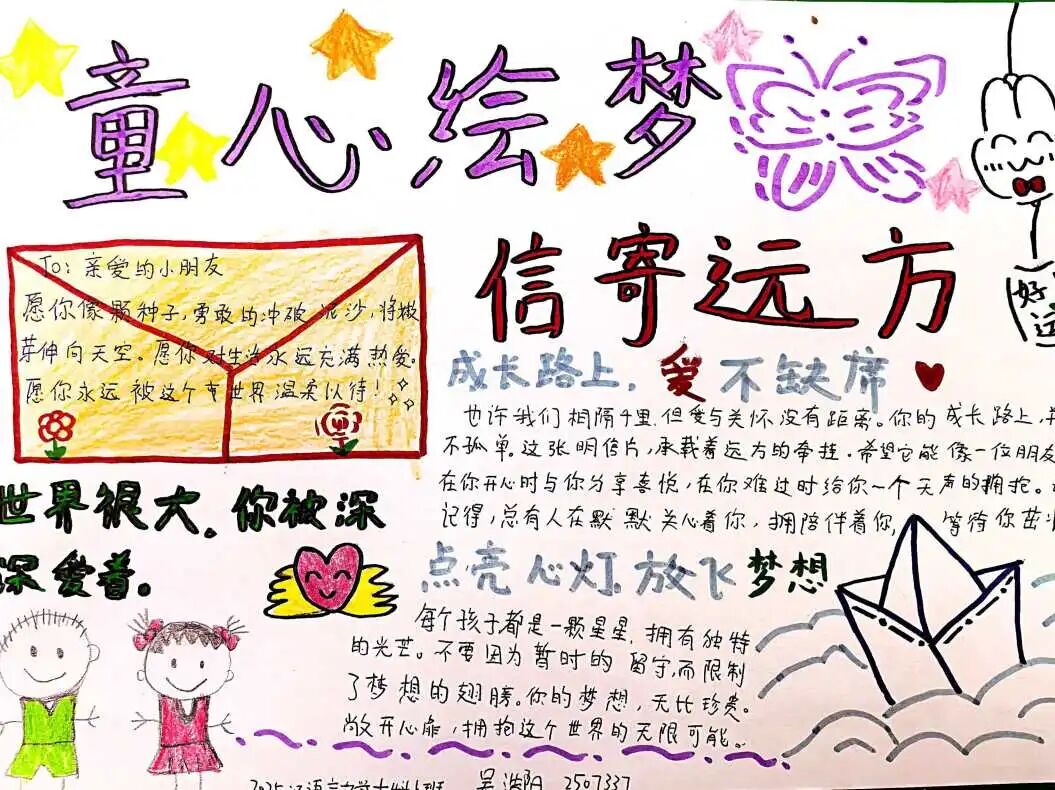 童心绘梦
信寄远方
好
运
To: 亲爱的小朋友
愿你像颗种子,勇敢的冲破泥沙,将嫩
芽伸向天空。愿你对生活永远充满热爱。
愿你永远被这个世界温柔以待!
成长路上,爱不缺席
也许我们相隔千里,但爱与关怀没有距离。你的成长路上,并
不孤单。这张明信片,承载着远方的牵挂。希望它能像一位朋友
在你开心时与你分享喜悦,在你难过时给你一个无声的拥抱。
记得,总有人在默默关心着你,拥陪伴着你,等待你茁壮
世界很大。你被深
深爱着。
点亮心灯.放飞梦想
每个孩子都是一颗星星,拥有独特
的光芒。不要因为暂时的留守,而限制
了梦想的翅膀。你的梦想,无比珍贵。
敞开心扉,拥抱这个世界的无限可能。
2025汉语言文学 班 吴 阳 2507337